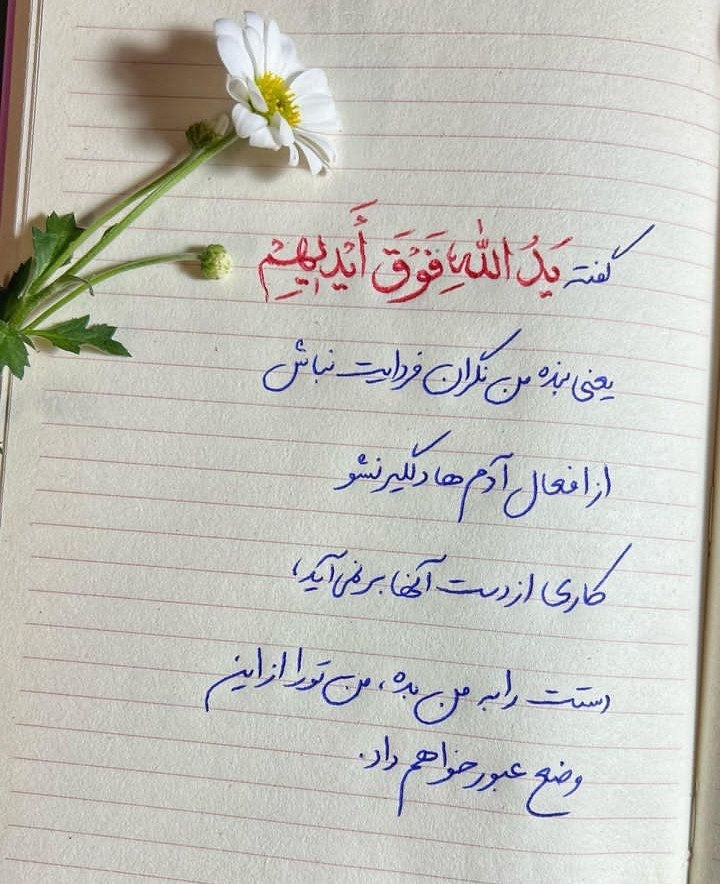 گفته یَدُ اللّٰهِ فَوْقَ أَیْدِیهِمْ
یعنی بنده من نگران فردایت نباش
از افعال آدم ها دلگیر نشو
کاری از دست آنها بر نمی آید،
دستت را به من بده، من تو را از این
وضع عبور خواهم داد.